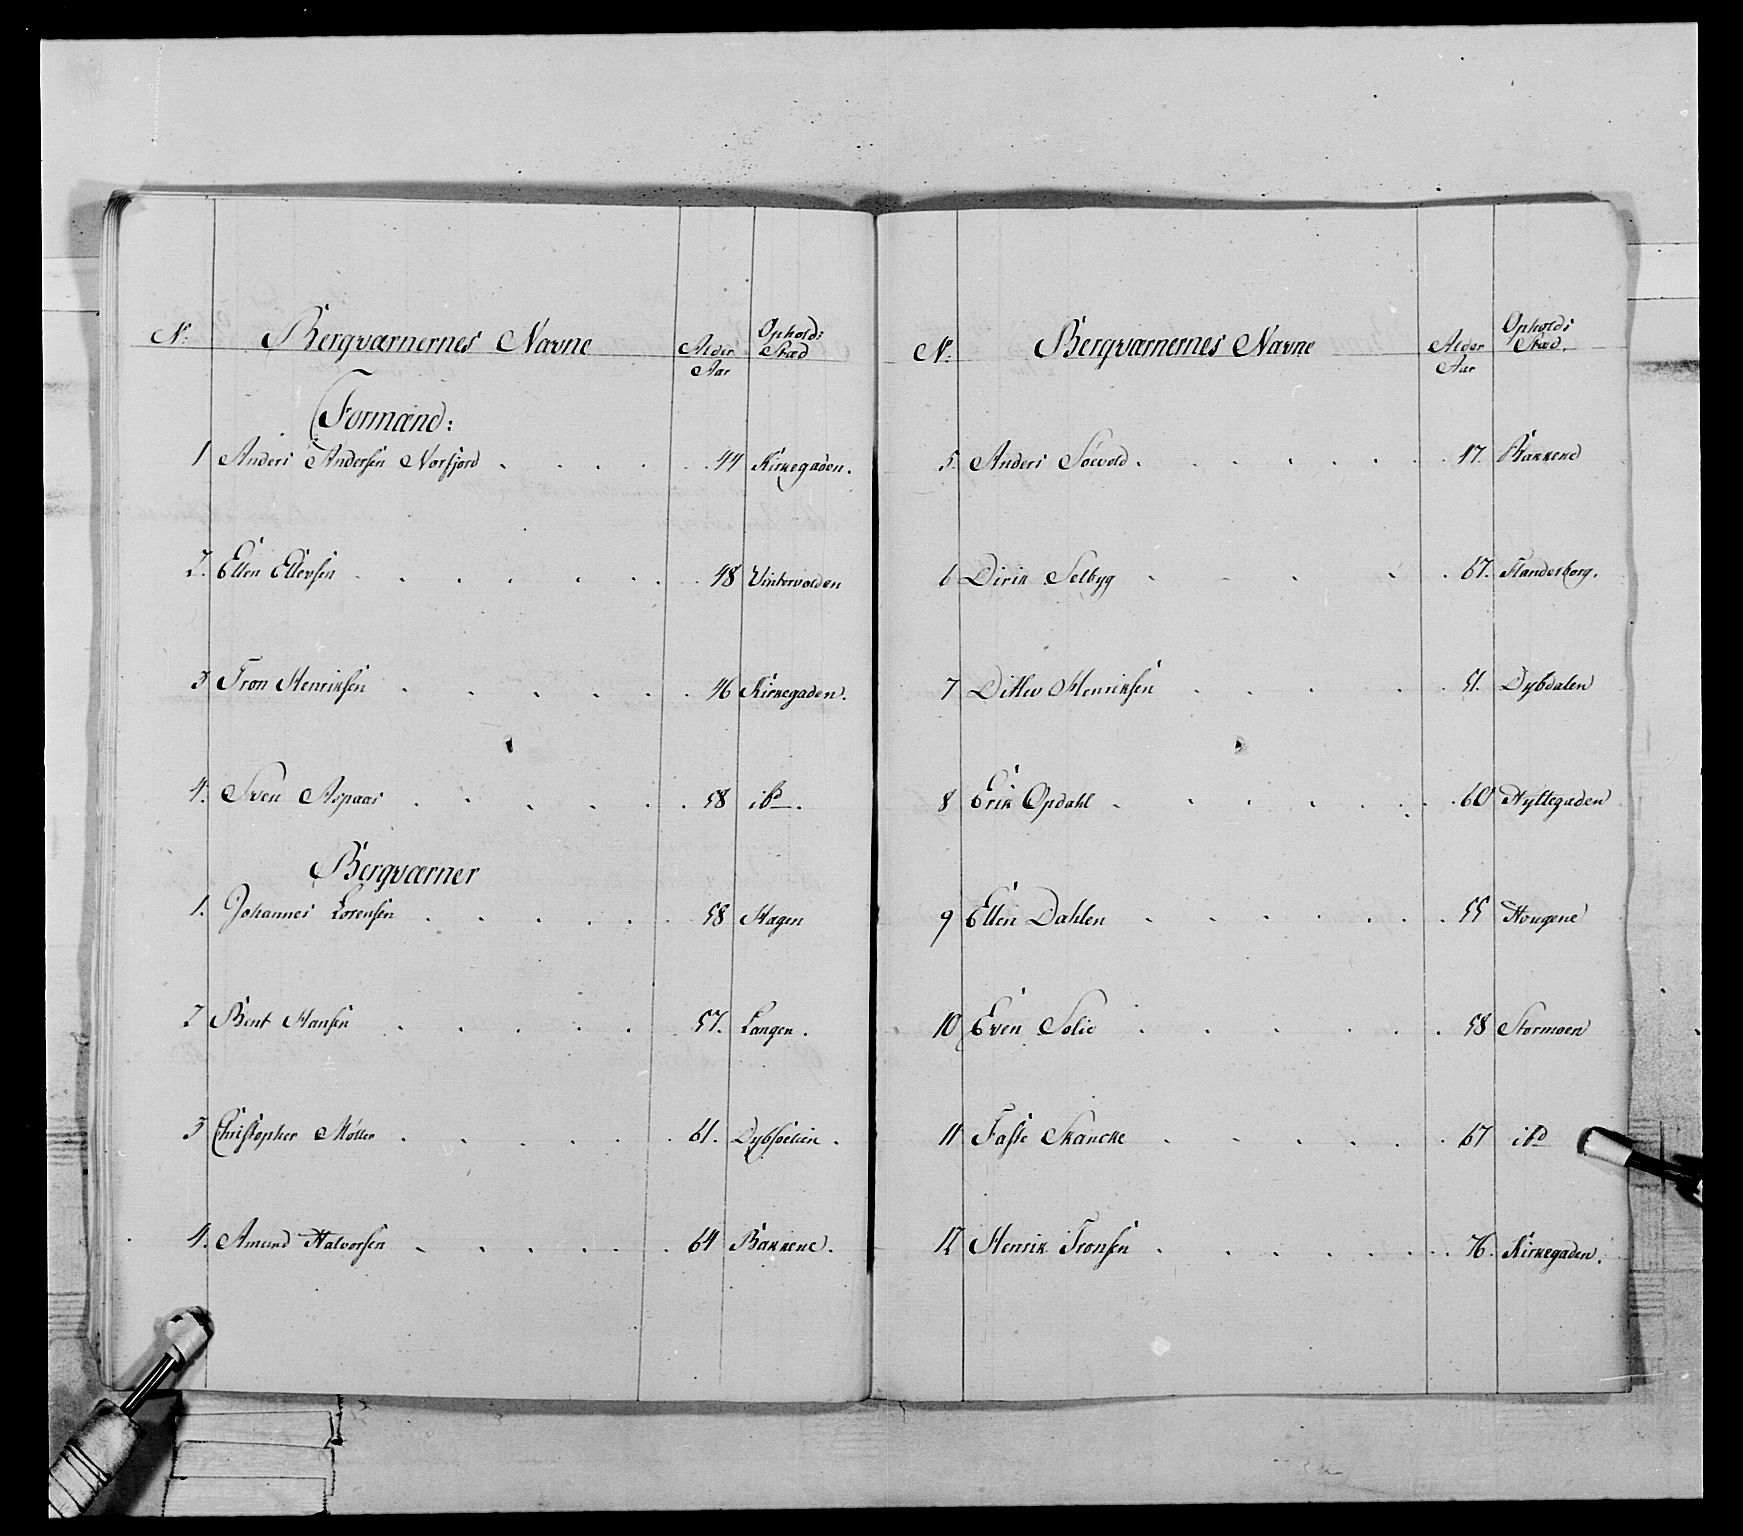 No. Bergværnernes Navne Alder Aar Opholds Stæd
Formænd:
1 Anders Andersen Norfjord 44 Kirkegaden.
2. Ellen Ellevsen 48 Vintervolden
3 Tron Henriksen 46 Kirkegaden.
4. Sven Aspaas 58 ibd.
Bergværner
1. Johannes Lorensen 58 Hagen
2 Bent Hansen 57. Langen.
3 Christopher Møller 61. Dybsoelien.
4. Amund Halvorsen 64 Bakkene.
No. Bergværnernes Navne Alder Aar Opholds Stæd.
5. Anders Soevold. 47. Bakkene
6 Dirik Selbyg 67. Flanderborg.
7 Ditlev Henriksen 51. Dybdalen
8 Erik Opdahl 60 Hyttegaden
9 Ellen Dahlen 55 Hougene
10 Even Solie 58 Stormoen
11 Faste Skancke 67 ibd
12 Henrik Tronsen 76. Kirkegaden.